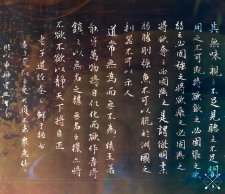 其無味視不足見聽之不足聞
用之不可既將欲歙之必固張之將欲
弱之必固強之將欲廢之必固興之
將欲奪之必固與之是謂微明柔
弱勝剛強魚不可脫於淵國之
利器不可以示人
道常無為而無不為侯王若
能守萬物將自化化而欲作吾將
鎮之以無名之樸無名之樸亦將
不欲不欲以靜天下將自正
老子道經卷上